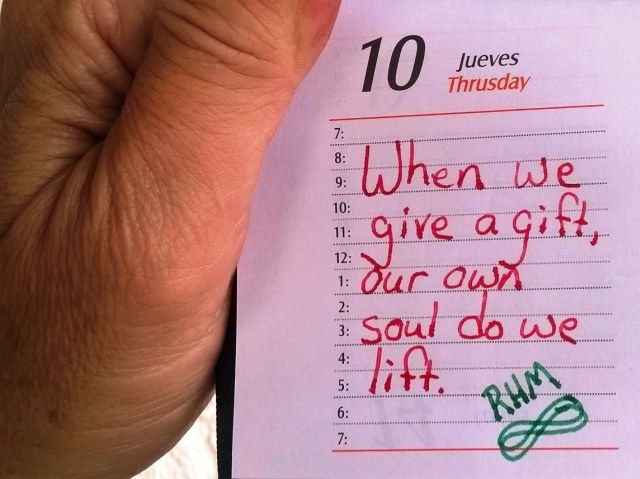 10 Jueves
Thrusday
7:
8:
9: When we
10:
11: give a gift,
12:
1: our own
2:
3: soul do we
4:
5: lift.
RHM
6:
7: